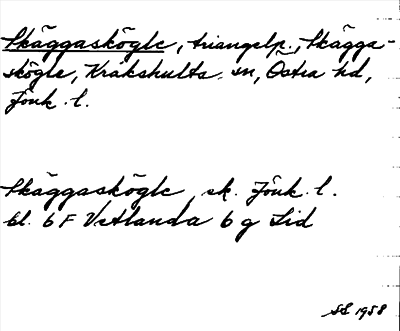 Skäggaskögle, triangelp., Skägga-
skögle, Kråkshults sn, Östra hd,
Jönk. l.
Skäggaskögle, sk. Jönk. l.
bl. 6 F Vetlanda 6 g Lid
SS 1958